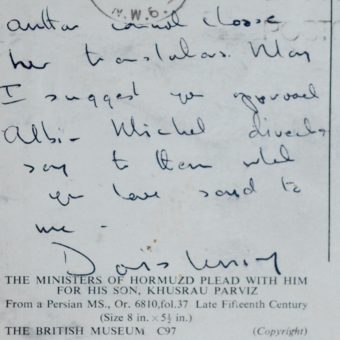 N.W.6.
author cannot choose
her translators. May
I suggest you approach
Albin Michel directly
say to them what
you have said to
me -
Doris Lessing
THE MINISTERS OF HORMUZD PLEAD WITH HIM
FOR HIS SON, KHUSRAU PARVIZ
From a Persian MS., Or. 6810,fol.37 Late Fifteenth Century
(Size 8 in. × 5½ in.)
THE BRITISH MUSEUM C97 (Copyright)